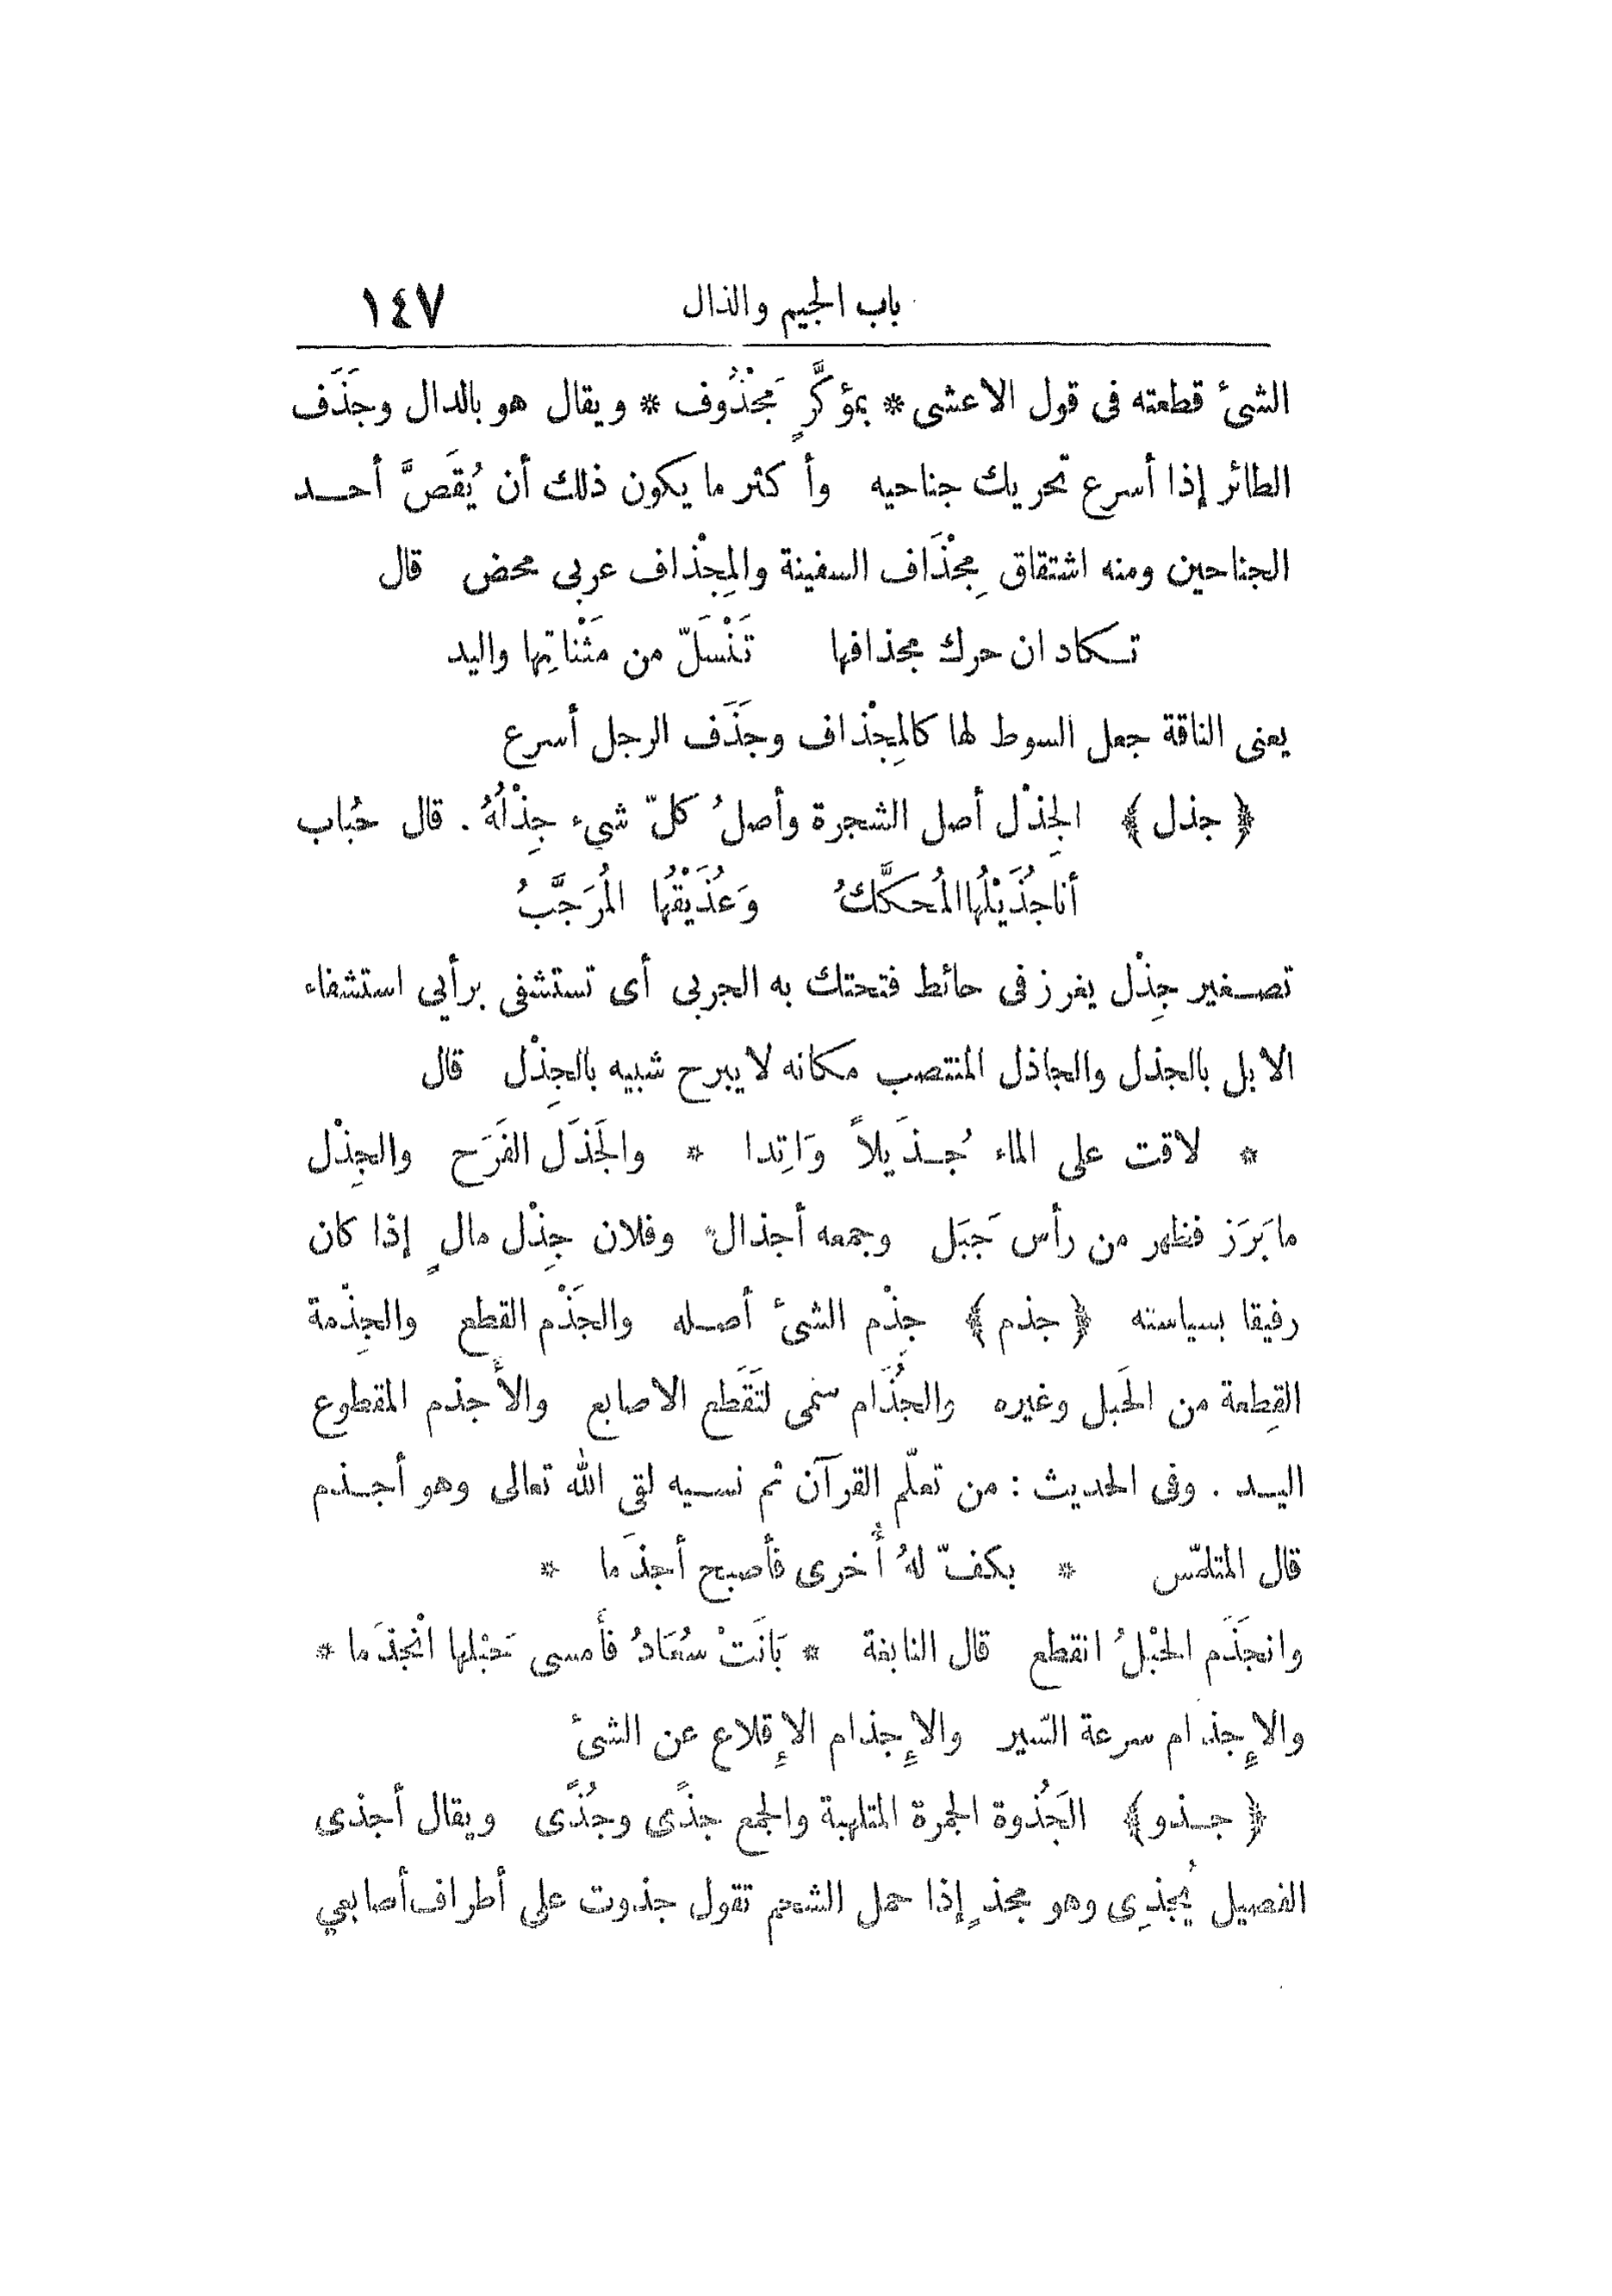 باب الجيم والذال ١٤٧
الشئ قطعته فى قول الاعشى * بمؤكَّرٍ مَجْذُوف * ويقال هو بالدال وجَذَف
الطائر إذا أسرع تحريك جناحيه وأكثر ما يكون ذلك أن يُقَصَّ أحد
الجناحين ومنه اشتقاق مِجْذَاف السفينة والمِجْذاف عربى محض قال
تكاد ان حرك مجذافها تَنْسَلّ من مَثْناتِها واليد
يعنى الناقة جعل السوط لها كالمِجْذاف وجَذَف الرجل أسرع
﴿ جذل ﴾ الجِذْل أصل الشجرة وأصلُ كلّ شيء جِذْلُهُ . قال حُباب
أنا جُذَيْلُها المُحكَّكُ وَعُذَيْقُها المُرَجَّبُ
تصغير جِذْل يغرز فى حائط فتحتك به الجربى أى تستشفى برأيي استشفاء
الابل بالجذل والجاذل المنتصب مكانه لا يبرح شبيه بالجِذْل قال
* لاقت على الماء جُذَيلاً وَاتِدا * والجَذَل الفَرَح والجِذْل
ما بَرَز فظهر من رأس جَبَل وجمعه أجذالٌ وفلان جِذْل مالٍ إذا كان
رفيقا بسياسته ﴿ جذم ﴾ جِذْم الشئ أصله والجَذْم القطع والجِذْمة
القِطعة من الحَبل وغيره والجُذَام سمى لتَقَطع الاصابع والأجذم المقطوع
اليد . وفى الحديث : من تعلّم القرآن ثم نسيه لقى الله تعالى وهو أجذم
قال المتلمّس * بكفّ لهُ أُخرى فأصبح أجذَما *
وانجَذَم الحْبلُ انقطع قال النابغة * بَانَتْ سُعَادُ فأمسى حَبْلها انْجذَما *
والإجذام سرعة السّير والإجذام الإقلاع عن الشئ
﴿ جذو ﴾ الجَذُوة الجمرة المتلهبة والجمع جذًى وجُذًى ويقال أجذى
الفصيل يُجذِى وهو مجذٍ إذا حمل الشحم تقول جذوت على أطراف أصابعي